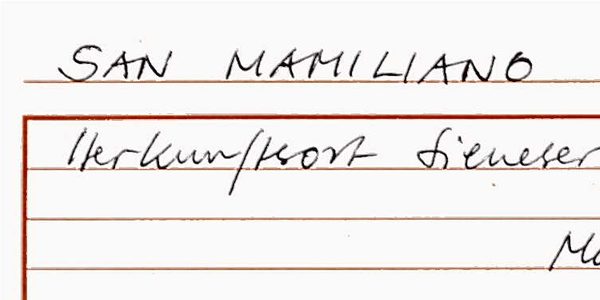 SAN MAMILIANO
Herkunftsort Sieneser